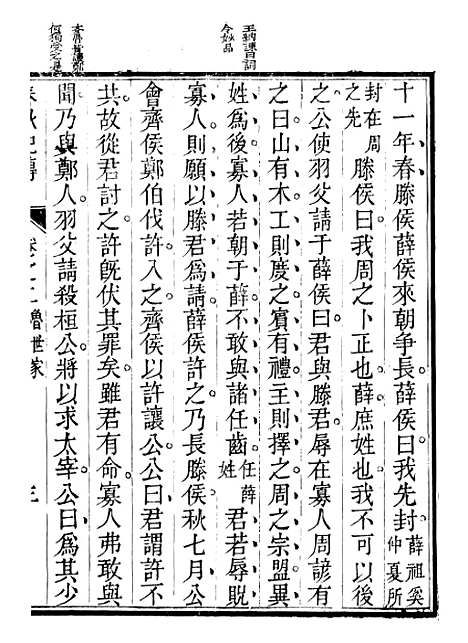 王納諫曰詞
令妙品
十一年春滕侯薛侯來朝爭長薛侯曰我先封薛祖奚仲夏所
封在周之先滕侯曰我周之卜正也薛庶姓也我不可以後
之公使羽父請于薛侯曰君與滕君辱在寡人周諺有
之曰山有木工則度之賓有禮主則擇之周之宗盟異
姓爲後寡人若朝于薛不敢與諸任齒任薛姓君若辱貺
寡人則願以滕君爲請薛侯許之乃長滕侯秋七月公
會齊侯鄭伯伐許入之齊侯以許讓公公曰君謂許不
共故從君討之許旣伏其罪矣雖君有命寡人弗敢與
聞乃與鄭人羽父請殺桓公將以求太宰公曰爲其少
魯世家 三